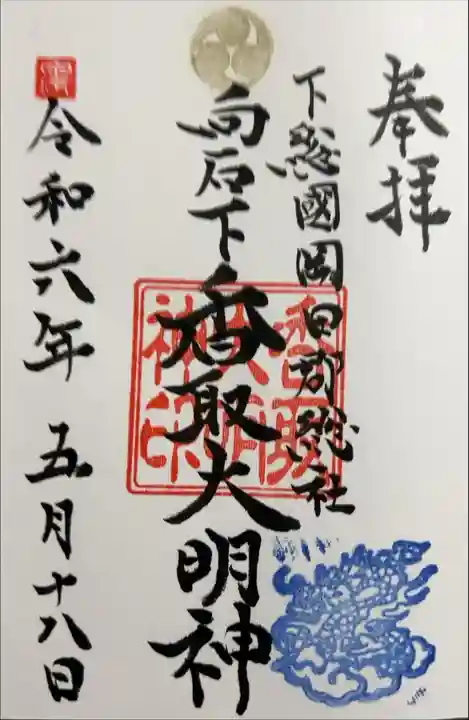 奉拝
下総國岡田郡総社
向石下香取大明神
令和六年 五月十八日